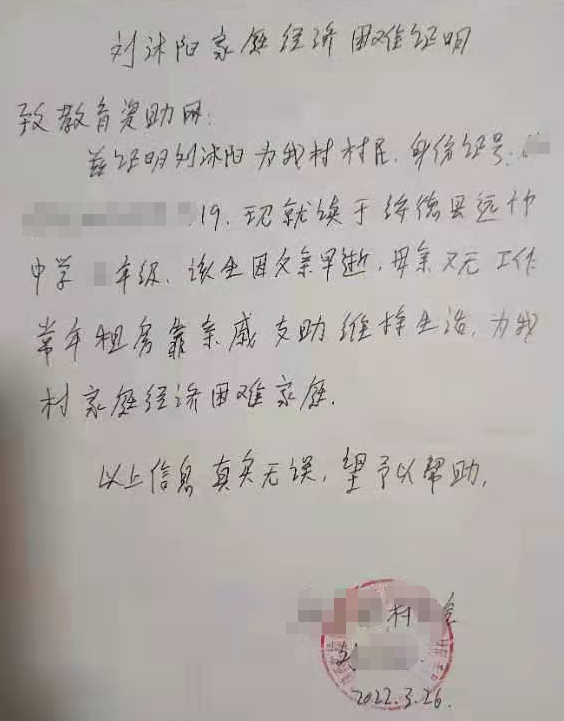 刘沭阳家庭经济困难证明
致教育资助网:
兹证明刘沭阳为我村村民,身份证号:
19,现就读于绥德县远信
中学 年级,该生因父亲早逝,母亲又无工作
常年租房靠亲戚支助维持生活,为我
村家庭经济困难家庭.
以上信息真实无误,望予以帮助.
村
2022.3.26.